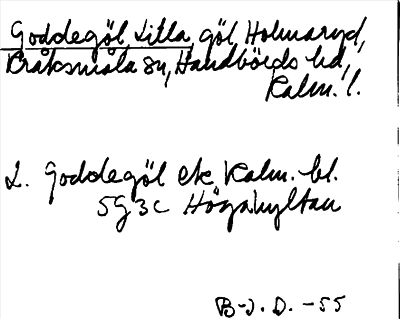 Goddegöl, Lilla, göl, Holmaryd,
Kråksmåla sn, Handbörds hd,
Kalm. l.
L. Goddegöl ek Kalm. bl.
5G3c Högahyltan
B-J. D. -55